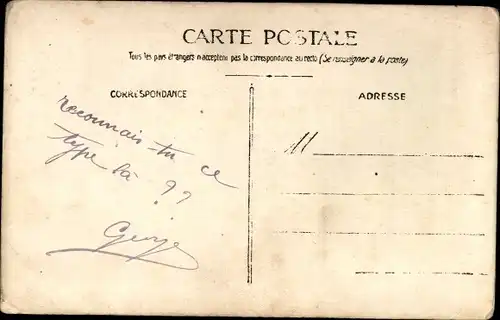 CARTE POSTALE
Tous les pays étrangers n'acceptent pas la correspondance au recto (Se renseigner à la poste)
CORRESPONDANCE
ADRESSE
reconnais-tu ce
type là ??
George
M